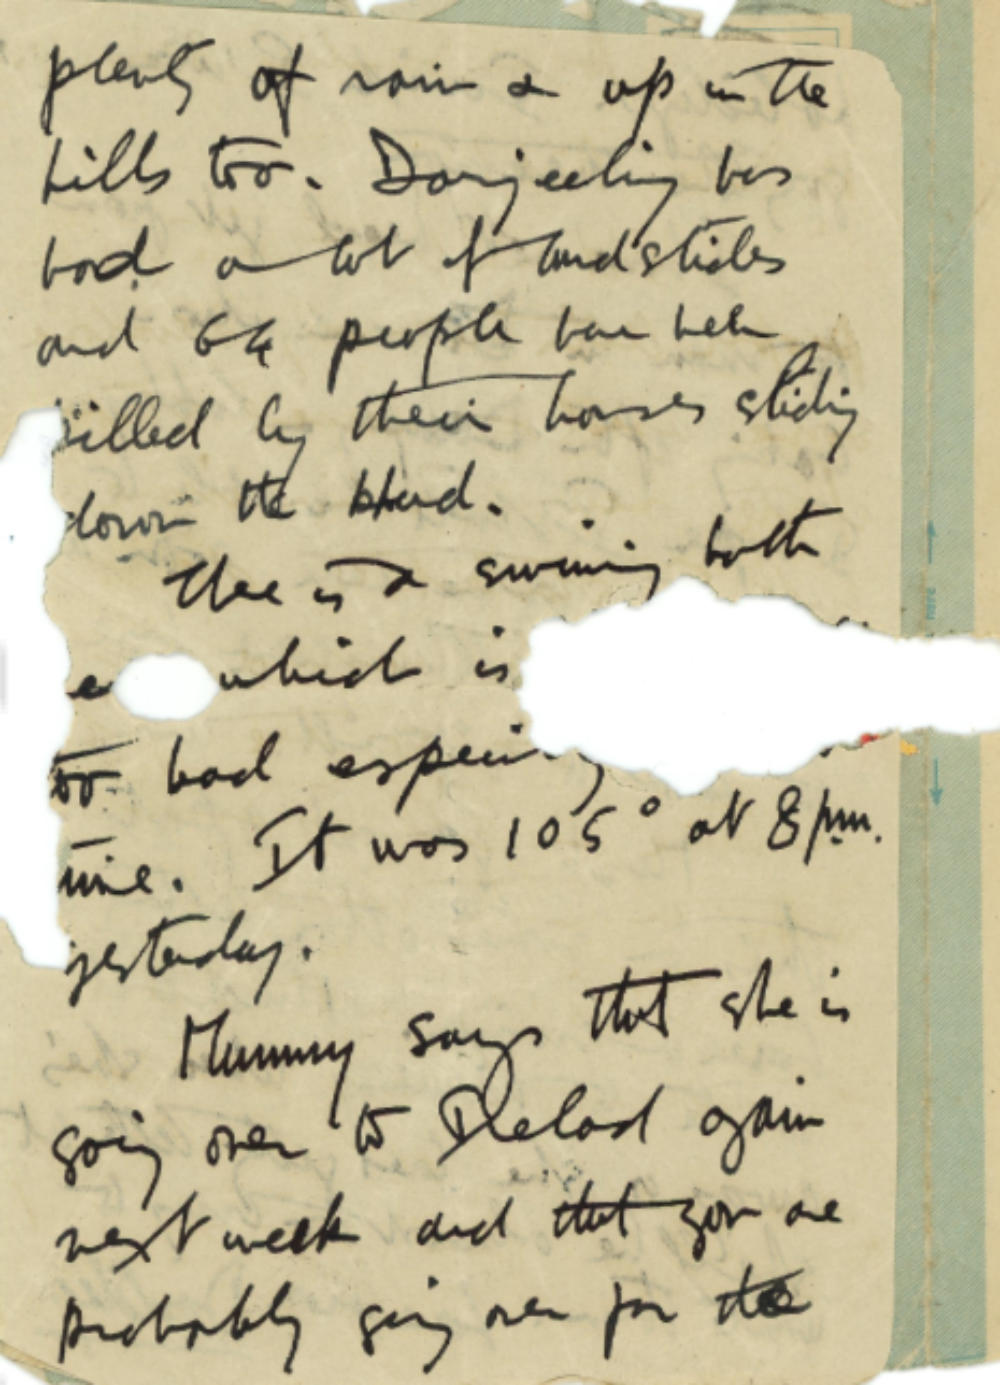 plenty of rain & up in the
hills too. Darjeeling has
had a lot of landslides
and 64 people have been
killed by their houses sliding
down the khud.
There is a swimming bath
which is
too bad especially
time. It was 105° at 8 pm.
yesterday.
Mummy says that she is
going over to Ireland again
next week and that you are
probably going over for the